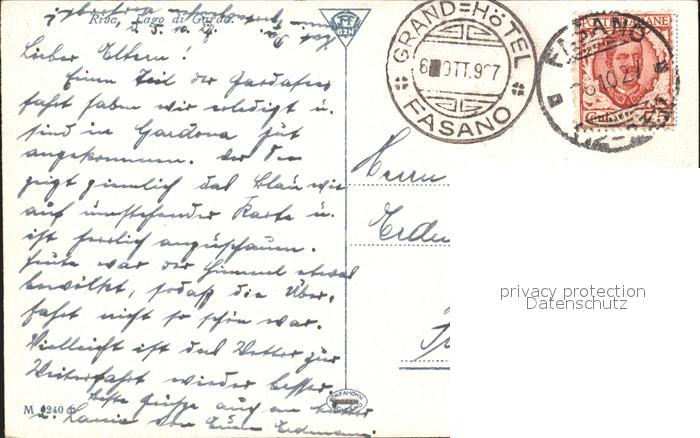 Riva, Lago di Garda.
Lieber Eltern!
Einen Teil der Gardasee
fahrt haben wir erledigt u.
sind in Gardone gut
angekommen. der See
zeigt ziemlich das Blau wie
auf umstehender Karte u.
ist herrlich anzuschauen.
Heute war der Himmel etwas
bewölkt, sodaß die Über-
fahrt nicht so schön war.
Vielleicht ist das Wetter zur
Weiterfahrt wieder besser.
Grüße auch an
von Erdmann
M 6240
GRAND=HÔTEL
FASANO
FASANO
6.10.27
Herrn
privacy protection
Datenschutz